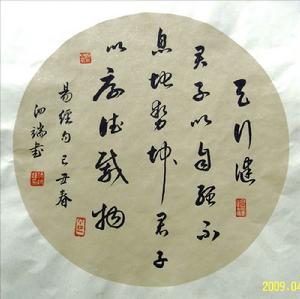 天行健
君子以自強不
息地勢坤君子
以厚德載物
易經句己丑春
2009.04